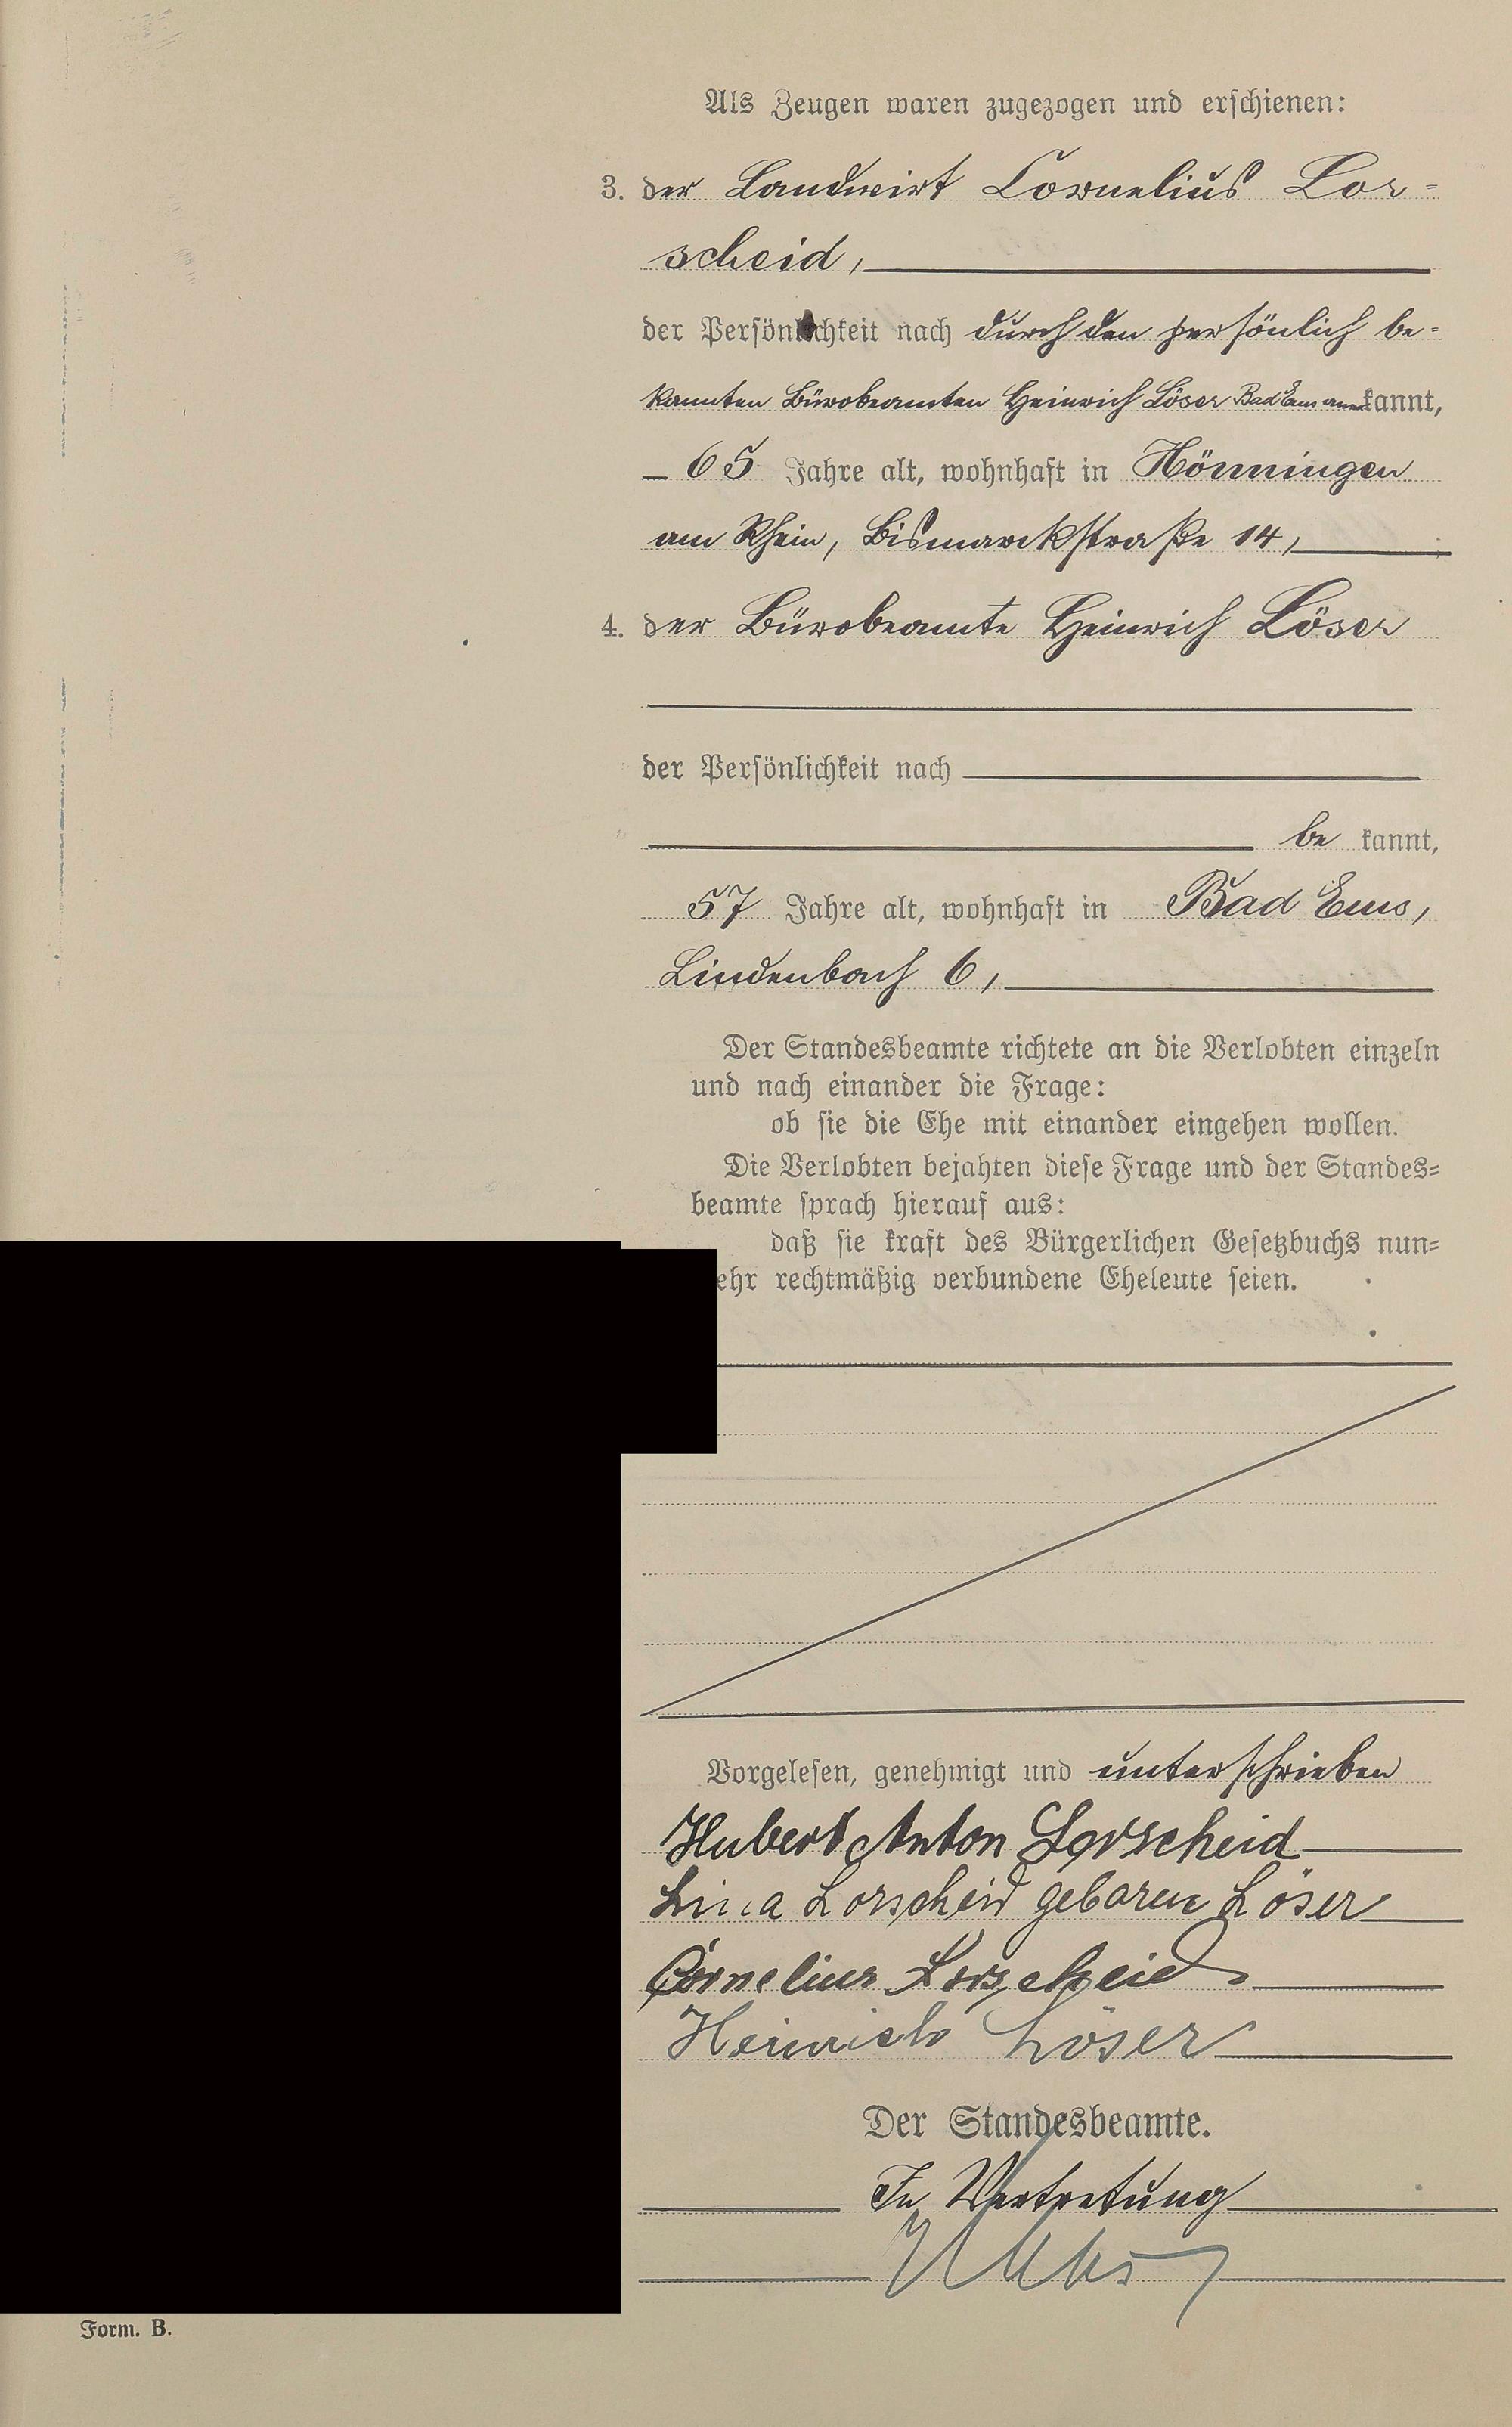 Als Zeugen waren zugezogen und erschienen:
3. der Landwirt Cornelius Lor-
scheid,
der Persönlichkeit nach durch den persönlich be-
kannten Bürobeamten Heinrich Löser Bad Ems anerkannt,
65 Jahre alt, wohnhaft in Hönningen
am Rhein, Bismarckstraße 14,
4. der Bürobeamte Heinrich Löser
der Persönlichkeit nach
be kannt,
57 Jahre alt, wohnhaft in Bad Ems,
Lindenbach 6,
Der Standesbeamte richtete an die Verlobten einzeln
und nach einander die Frage:
ob sie die Ehe mit einander eingehen wollen.
Die Verlobten bejahten diese Frage und der Standes-
beamte sprach hierauf aus:
daß sie kraft des Bürgerlichen Gesetzbuchs nun-
ehr rechtmäßig verbundene Eheleute seien.
Vorgelesen, genehmigt und unterschrieben
Hubert Anton Lorscheid
Lina Lorscheid geboren Löser
Cornelius Lorscheid
Heinrich Löser
Der Standesbeamte.
In Vertretung
Form. B.